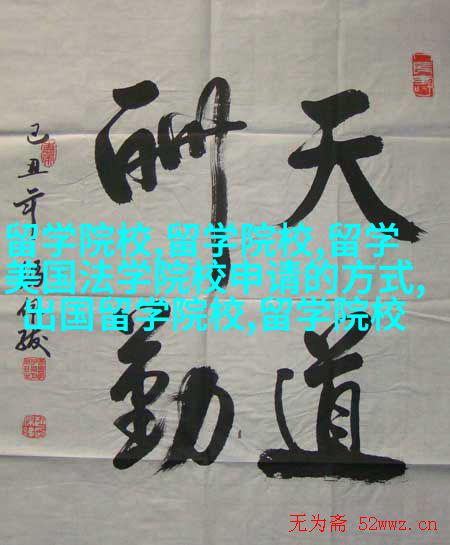 天道
酬勤
己丑年
留学院校,留学院校,留学
美国法学院校申请的方式,
出国留学院校,留学院校
无为斋 52wwz.cn